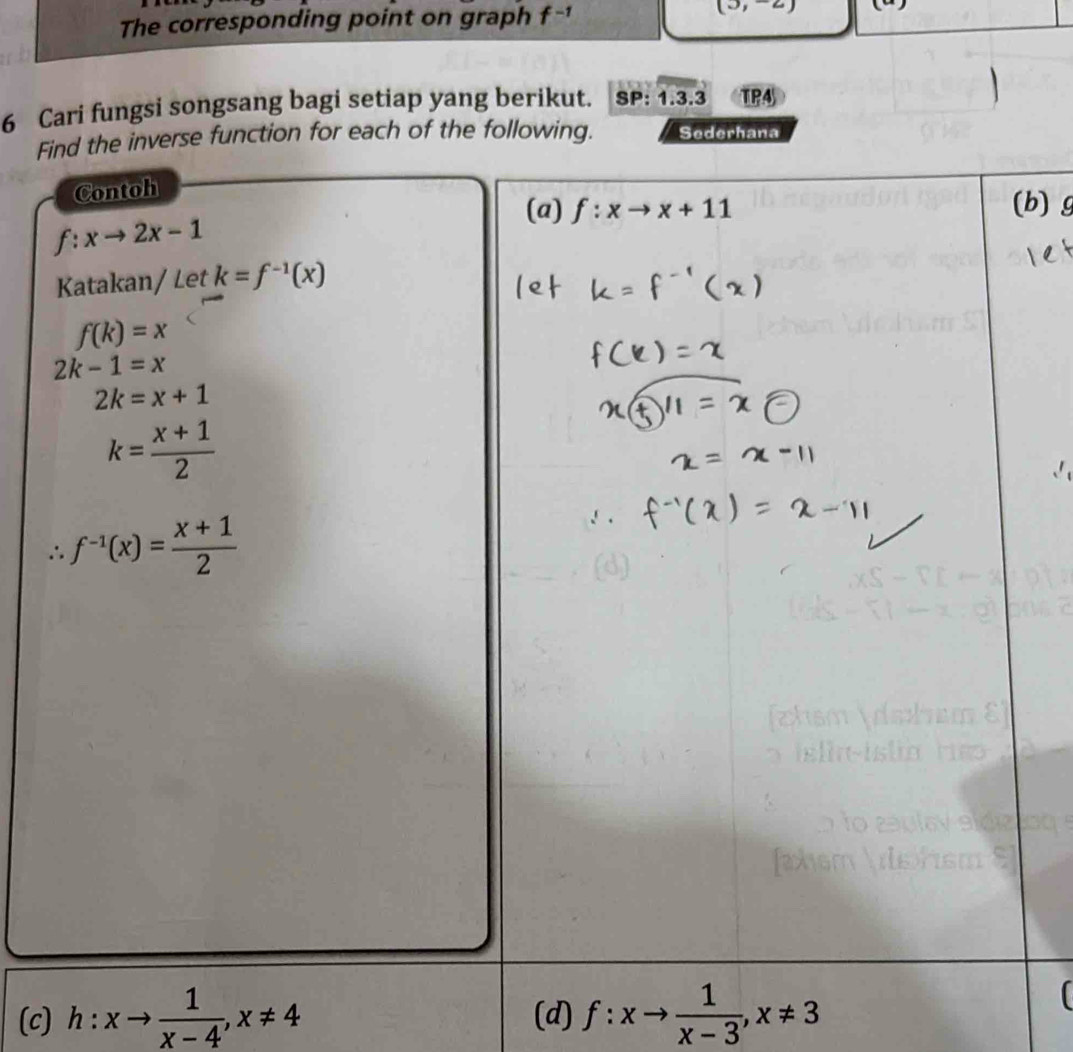 The corresponding point on graph f⁻¹
(3, −2)
6 Cari fungsi songsang bagi setiap yang berikut. SP: 1.3.3 TP4
Find the inverse function for each of the following. Sederhana
Contoh
f : x → 2x − 1
Katakan/ Let k = f⁻¹(x)
f(k) = x
2k − 1 = x
2k = x + 1
k = (x + 1)/2
∴ f⁻¹(x) = (x + 1)/2
(a) f : x → x + 11
let k = f⁻¹(x)
f(k) = x
x + 11 = x −
x = x − 11
∴ f⁻¹(x) = x − 11 ✓
(b) g
let
∴
(c) h : x → 1/(x − 4), x ≠ 4
(d) f : x → 1/(x − 3), x ≠ 3